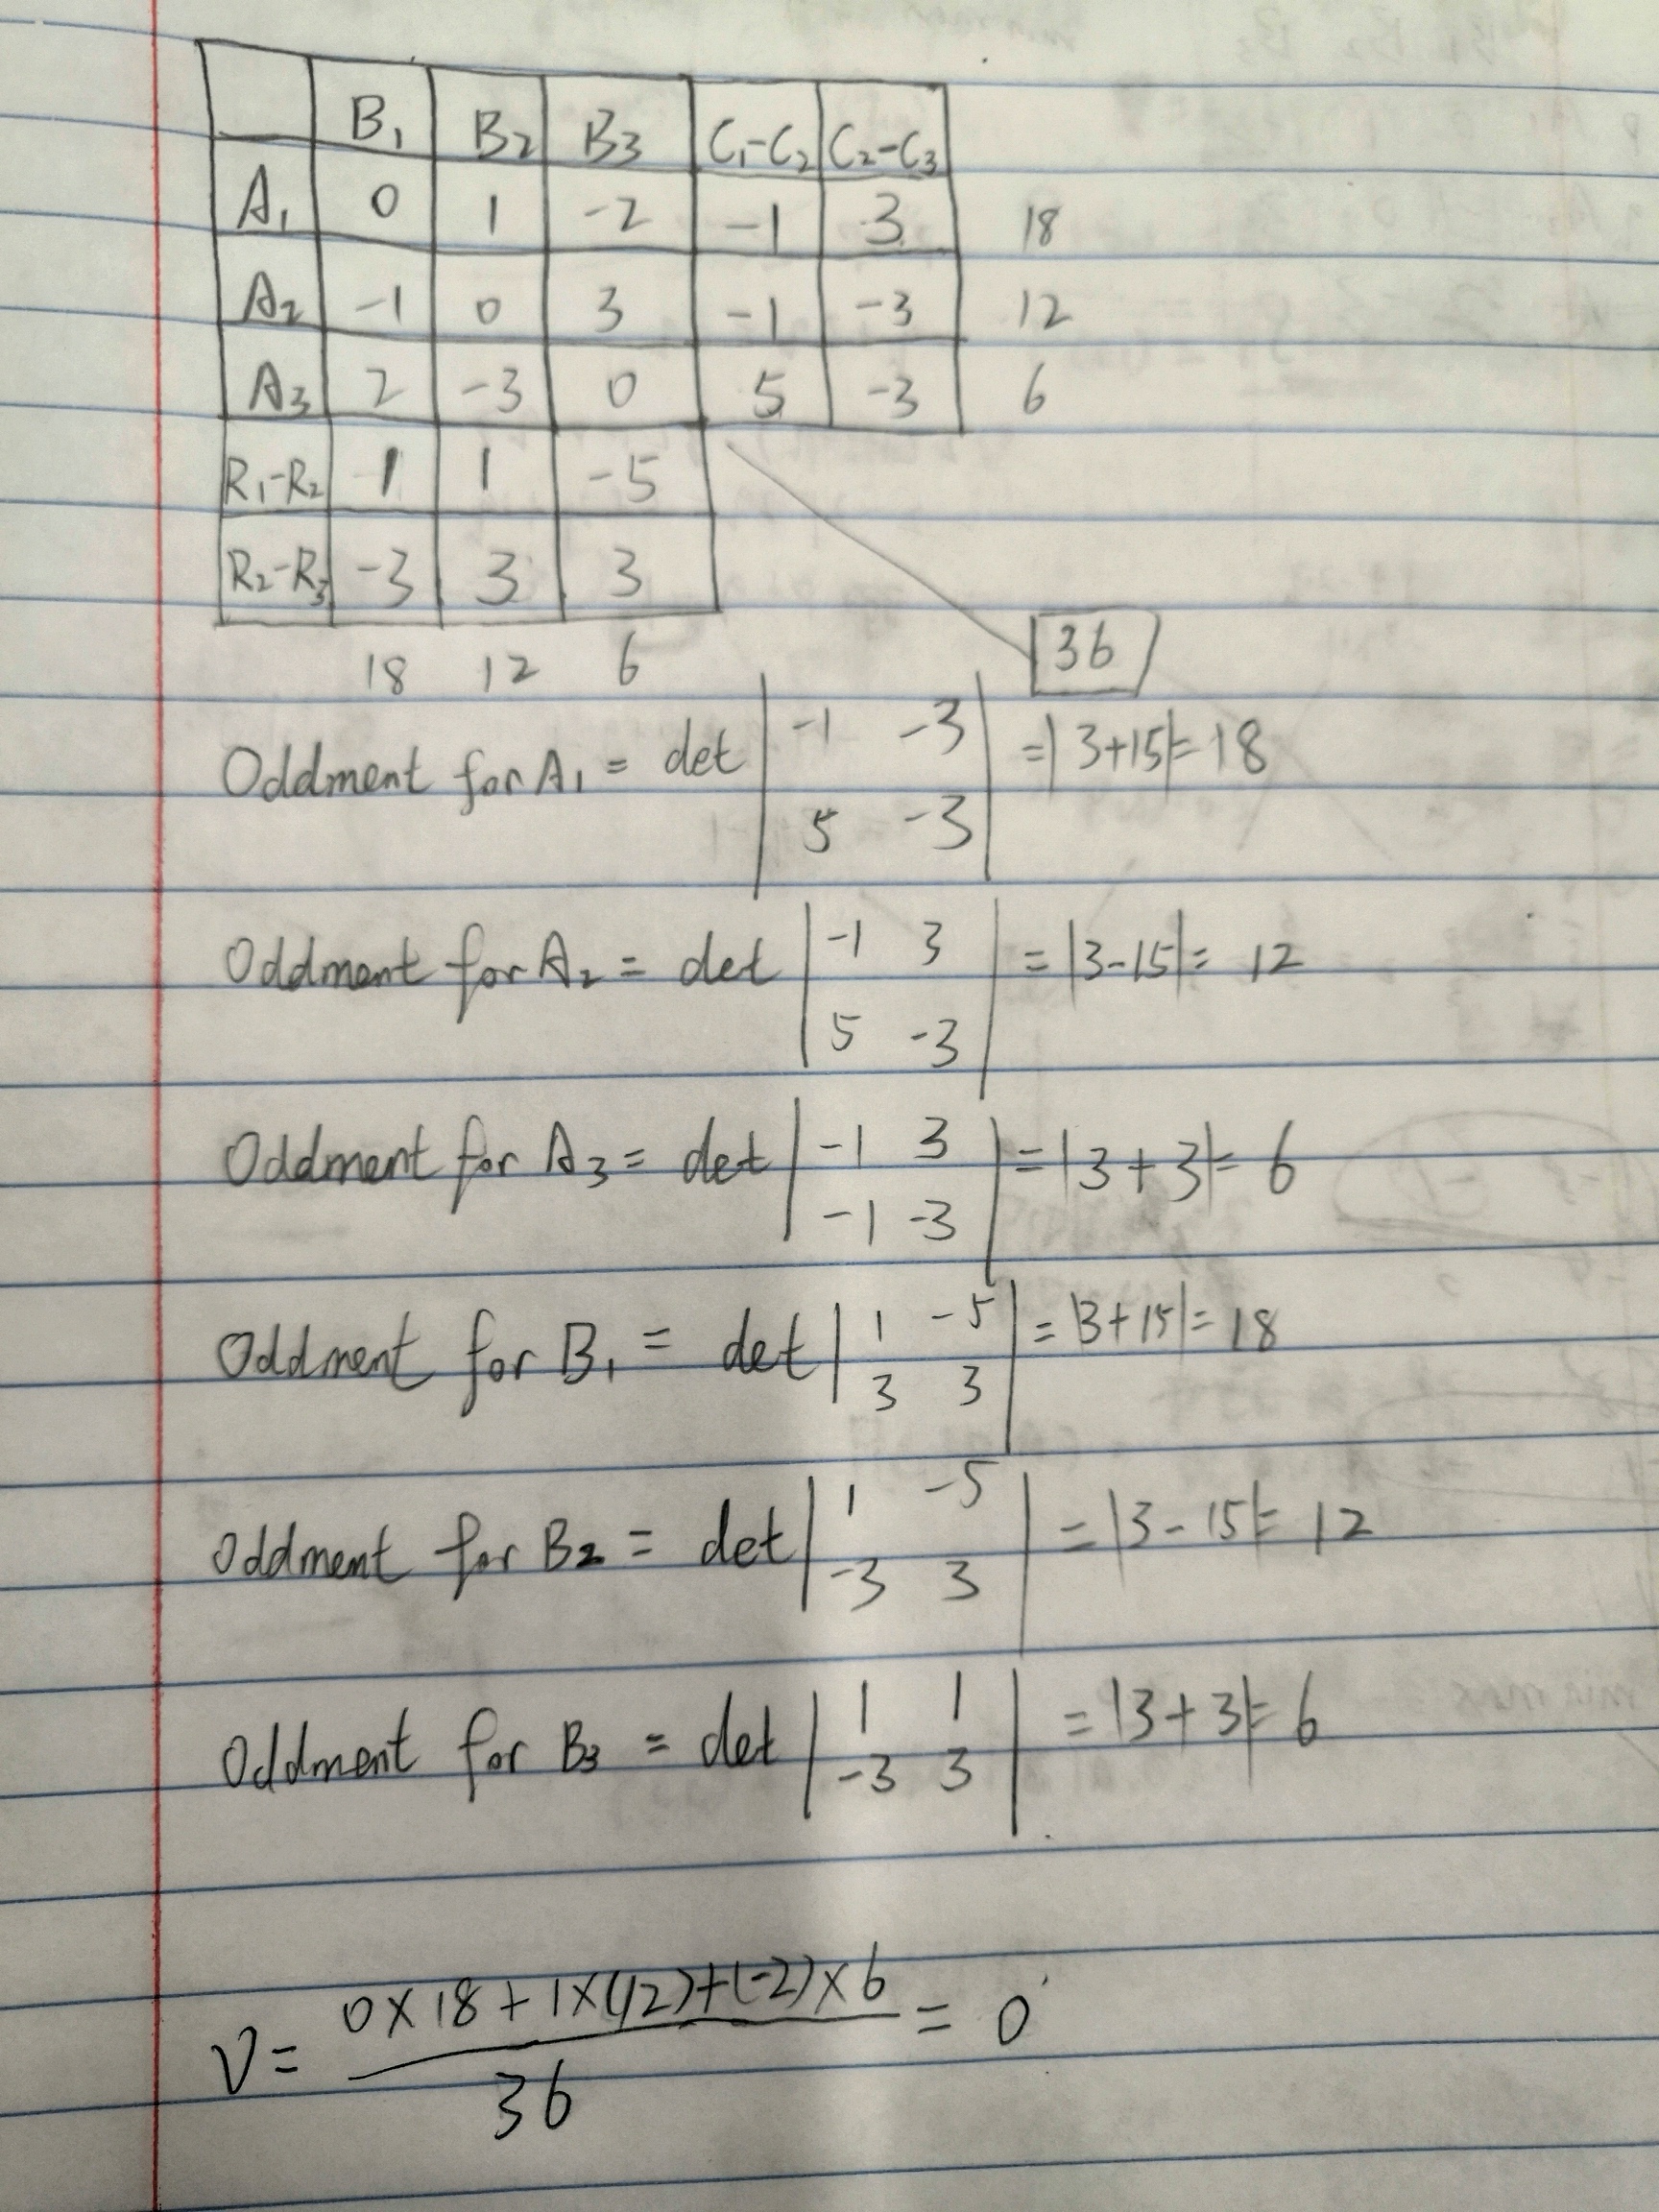 B₁ B₂ B₃ C₁-C₂ C₂-C₃
A₁ 0 1 -2 -1 3 18
A₂ -1 0 3 -1 -3 12
A₃ 2 -3 0 5 -3 6
R₁-R₂ 1 1 -5
R₂-R₃ -3 3 3
18 12 6 36
Oddment for A₁ = det | -1 -3 | = |3+15| = 18
5 -3
Oddment for A₂ = det | -1 3 | = |3-15| = 12
5 -3
Oddment for A₃ = det | -1 3 | = |3+3| = 6
-1 -3
Oddment for B₁ = det | 1 -5 | = |3+15| = 18
3 3
Oddment for B₂ = det | 1 -5 | = |3-15| = 12
-3 3
Oddment for B₃ = det | 1 1 | = |3+3| = 6
-3 3
0×18+1×(12)+(-2)×6
V= = 0
36